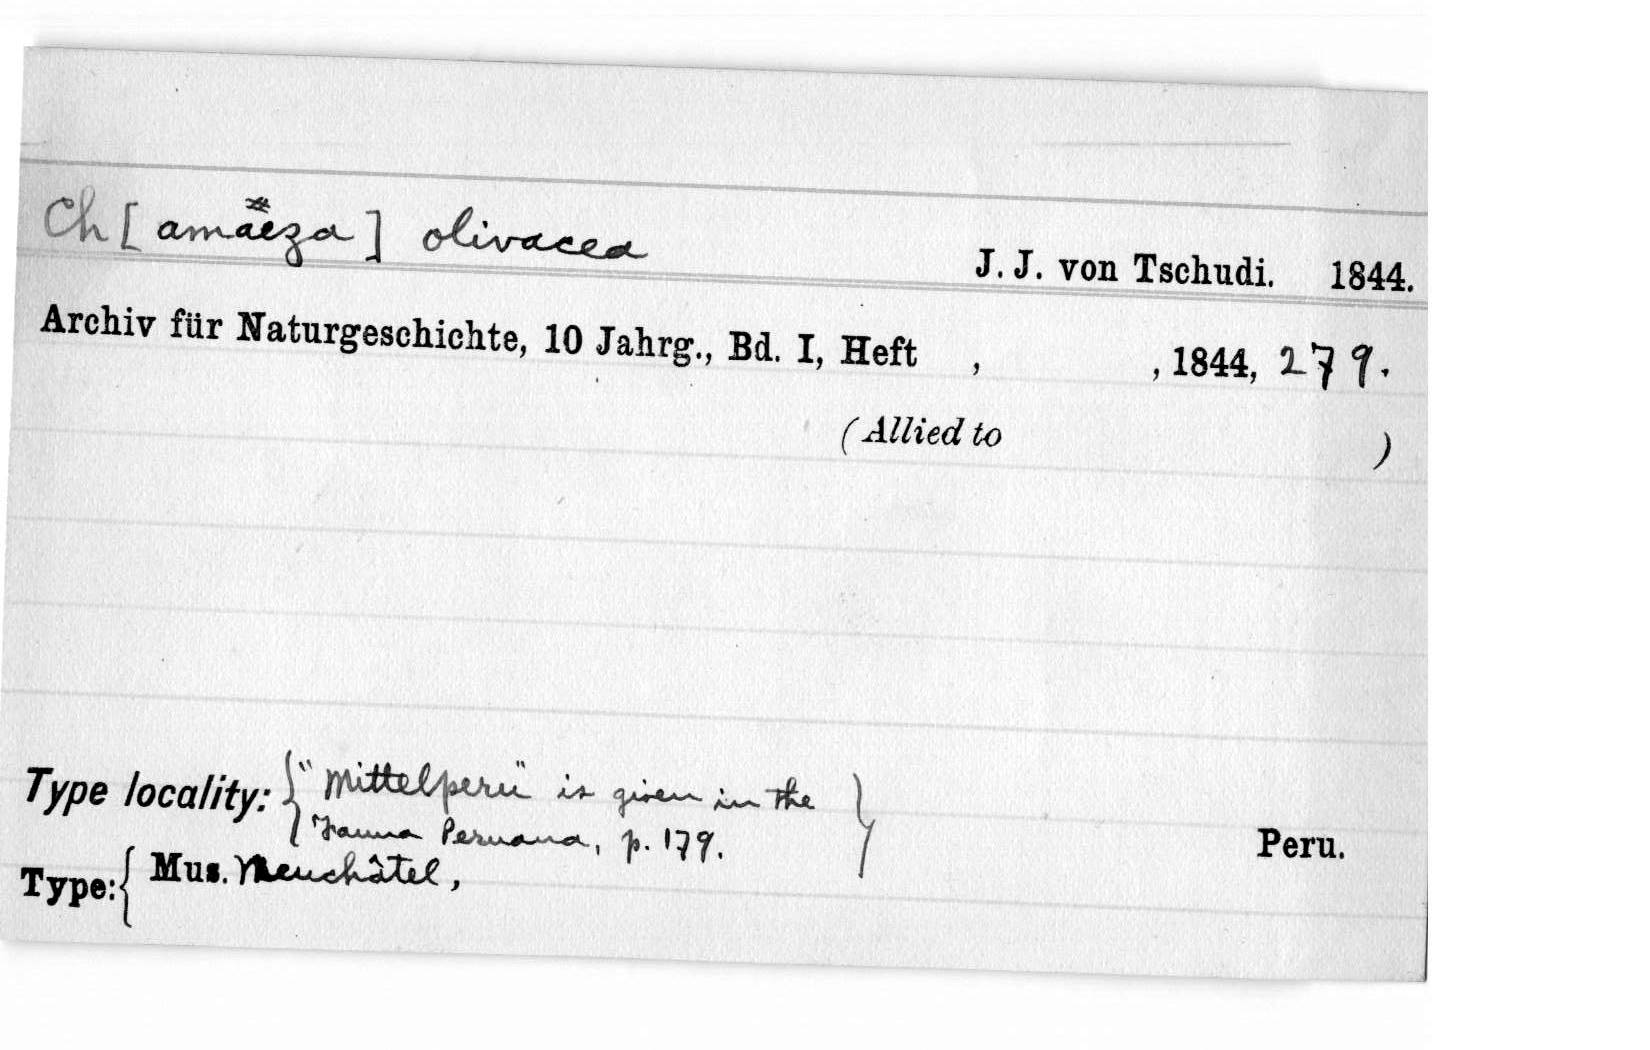 Ch[amäeza] olivacea
J. J. von Tschudi. 1844.
Archiv für Naturgeschichte, 10 Jahrg., Bd. I, Heft , , 1844, 279.
(Allied to )
Type locality: { "Mittelperu" is given in the }
Fauna Peruana, p. 179.
Peru.
Type: { Mus. Neuchâtel,